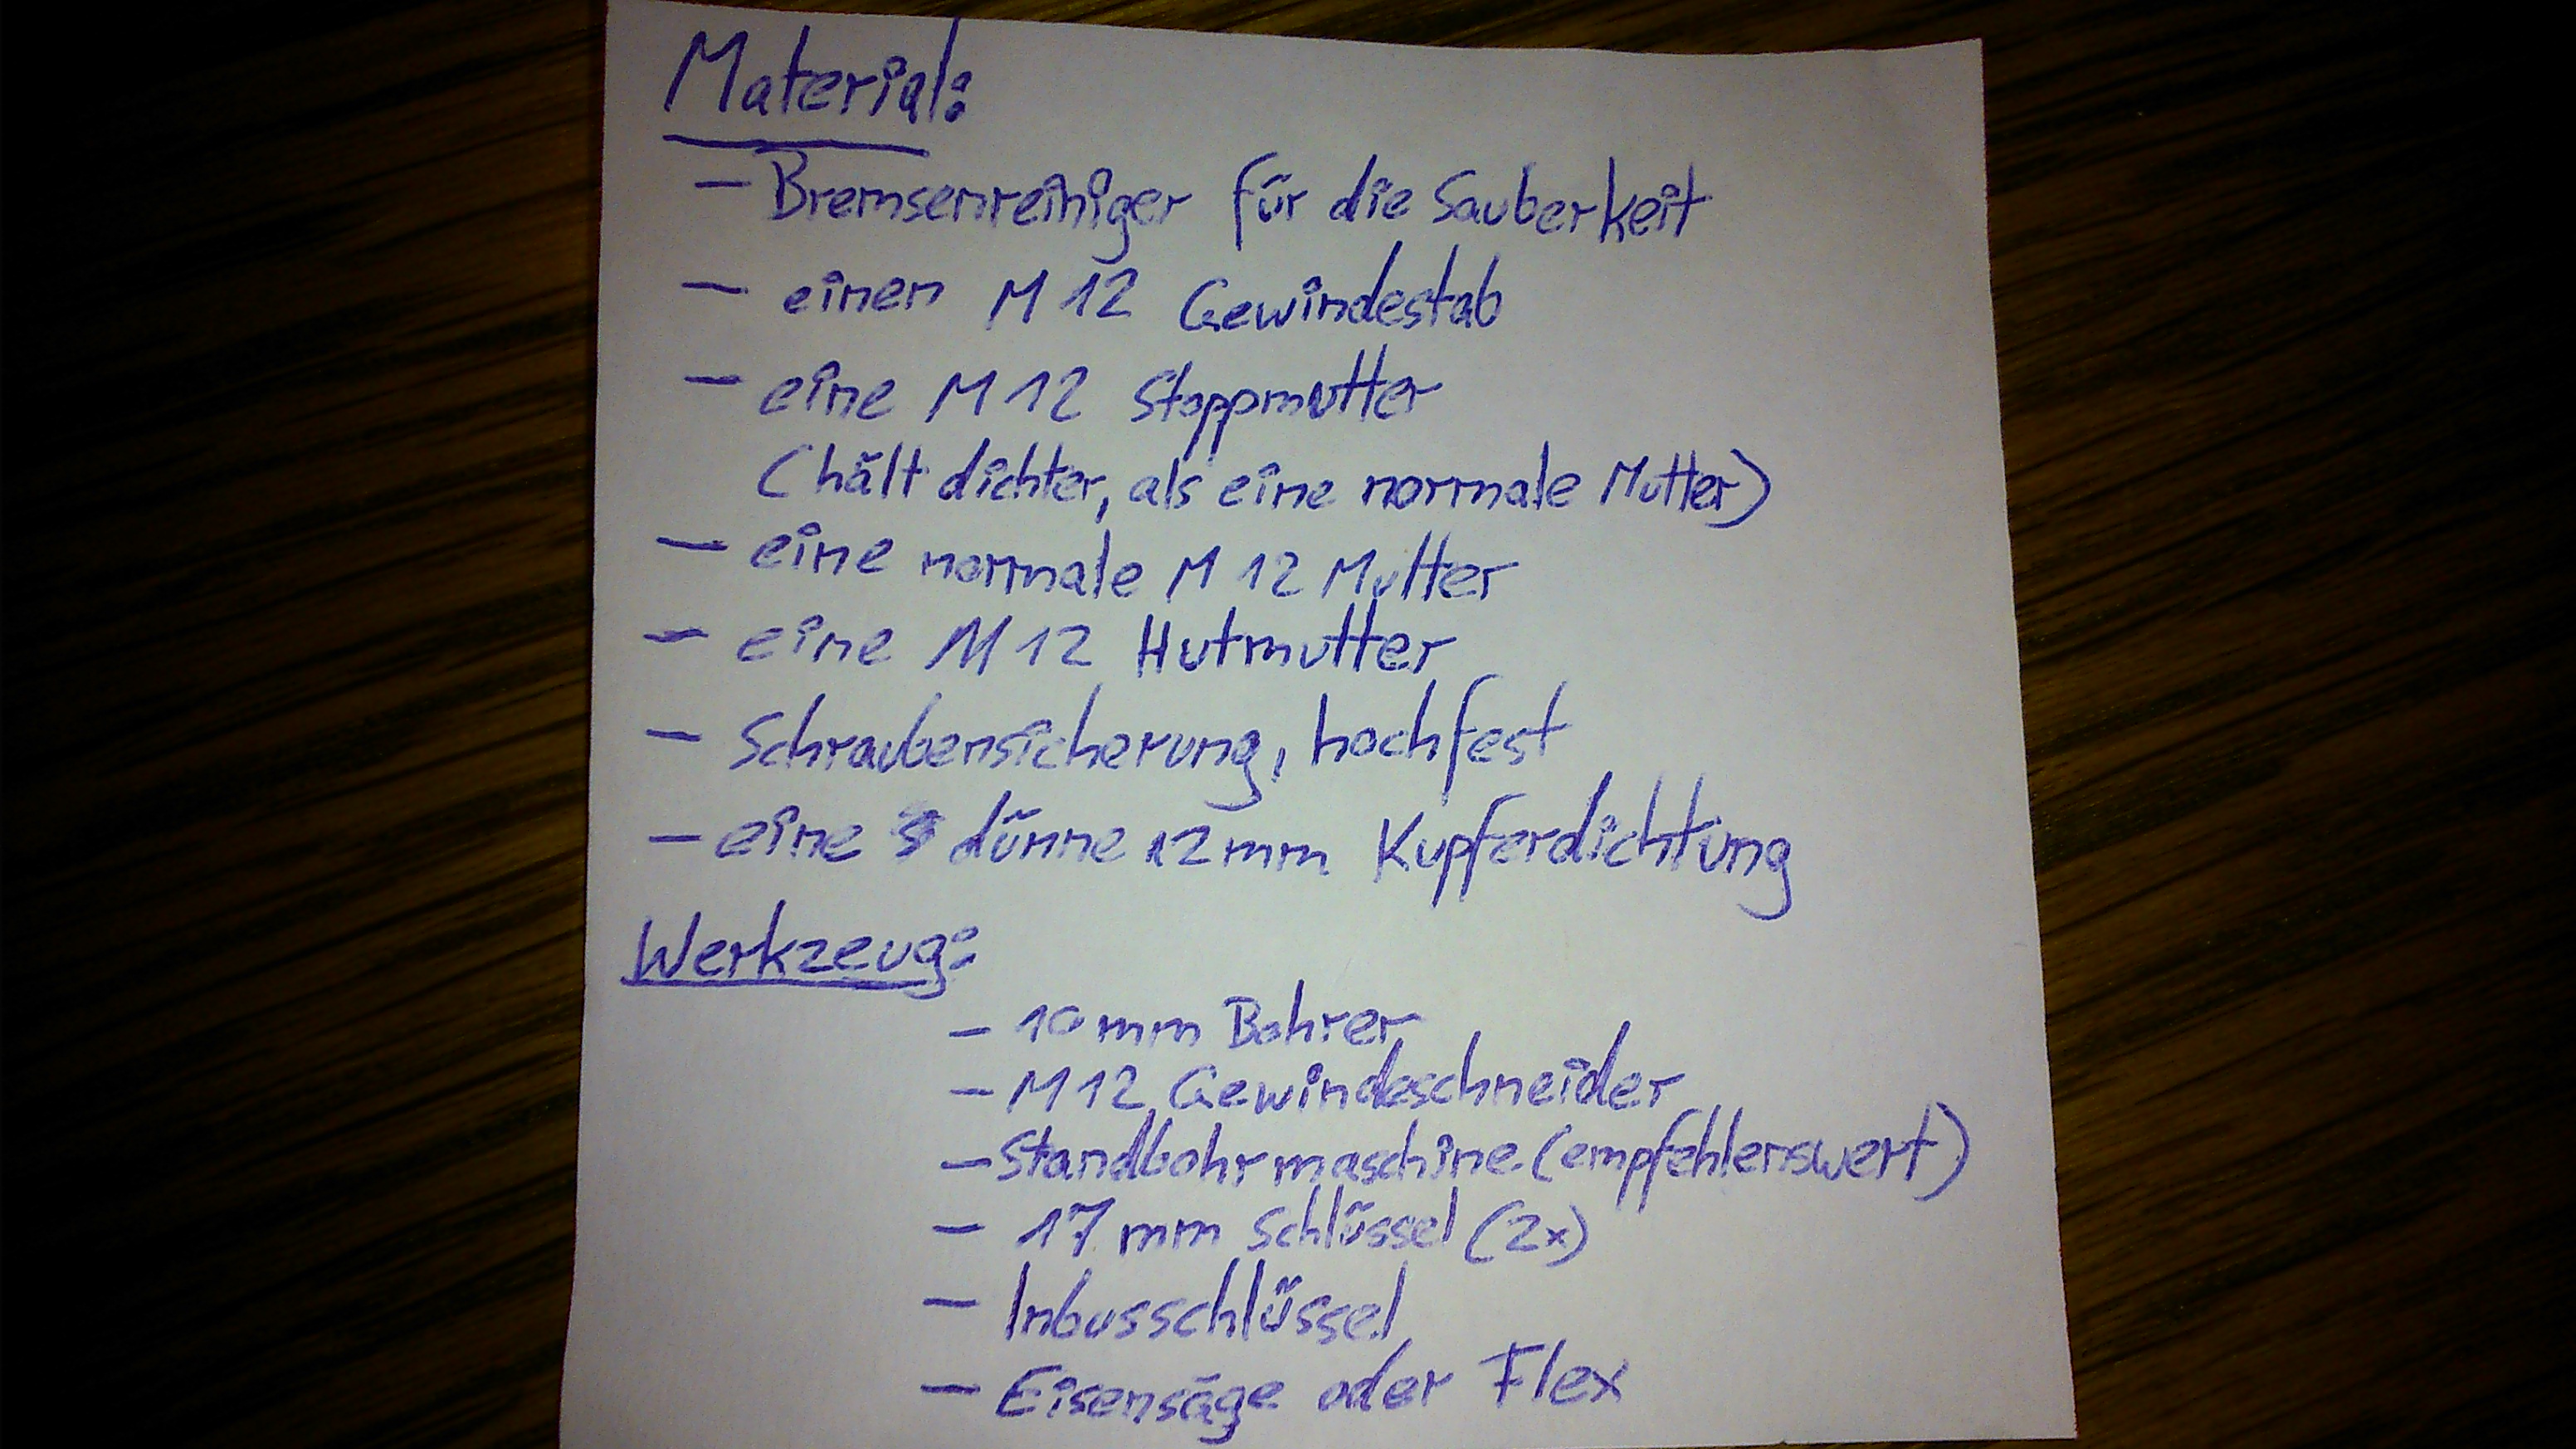 Material:
- Bremsenreiniger für die Sauberkeit
- einen M 12 Gewindestab
- eine M 12 Stoppmutter
(hält dichter, als eine normale Mutter)
- eine normale M 12 Mutter
- eine M 12 Hutmutter
- Schraubensicherung, hochfest
- eine dünne 12 mm Kupferdichtung
Werkzeug:
- 10 mm Bohrer
- M 12 Gewindeschneider
- Standbohrmaschine (empfehlenswert)
- 17 mm Schlüssel (2x)
- Inbusschlüssel
- Eisensäge oder Flex